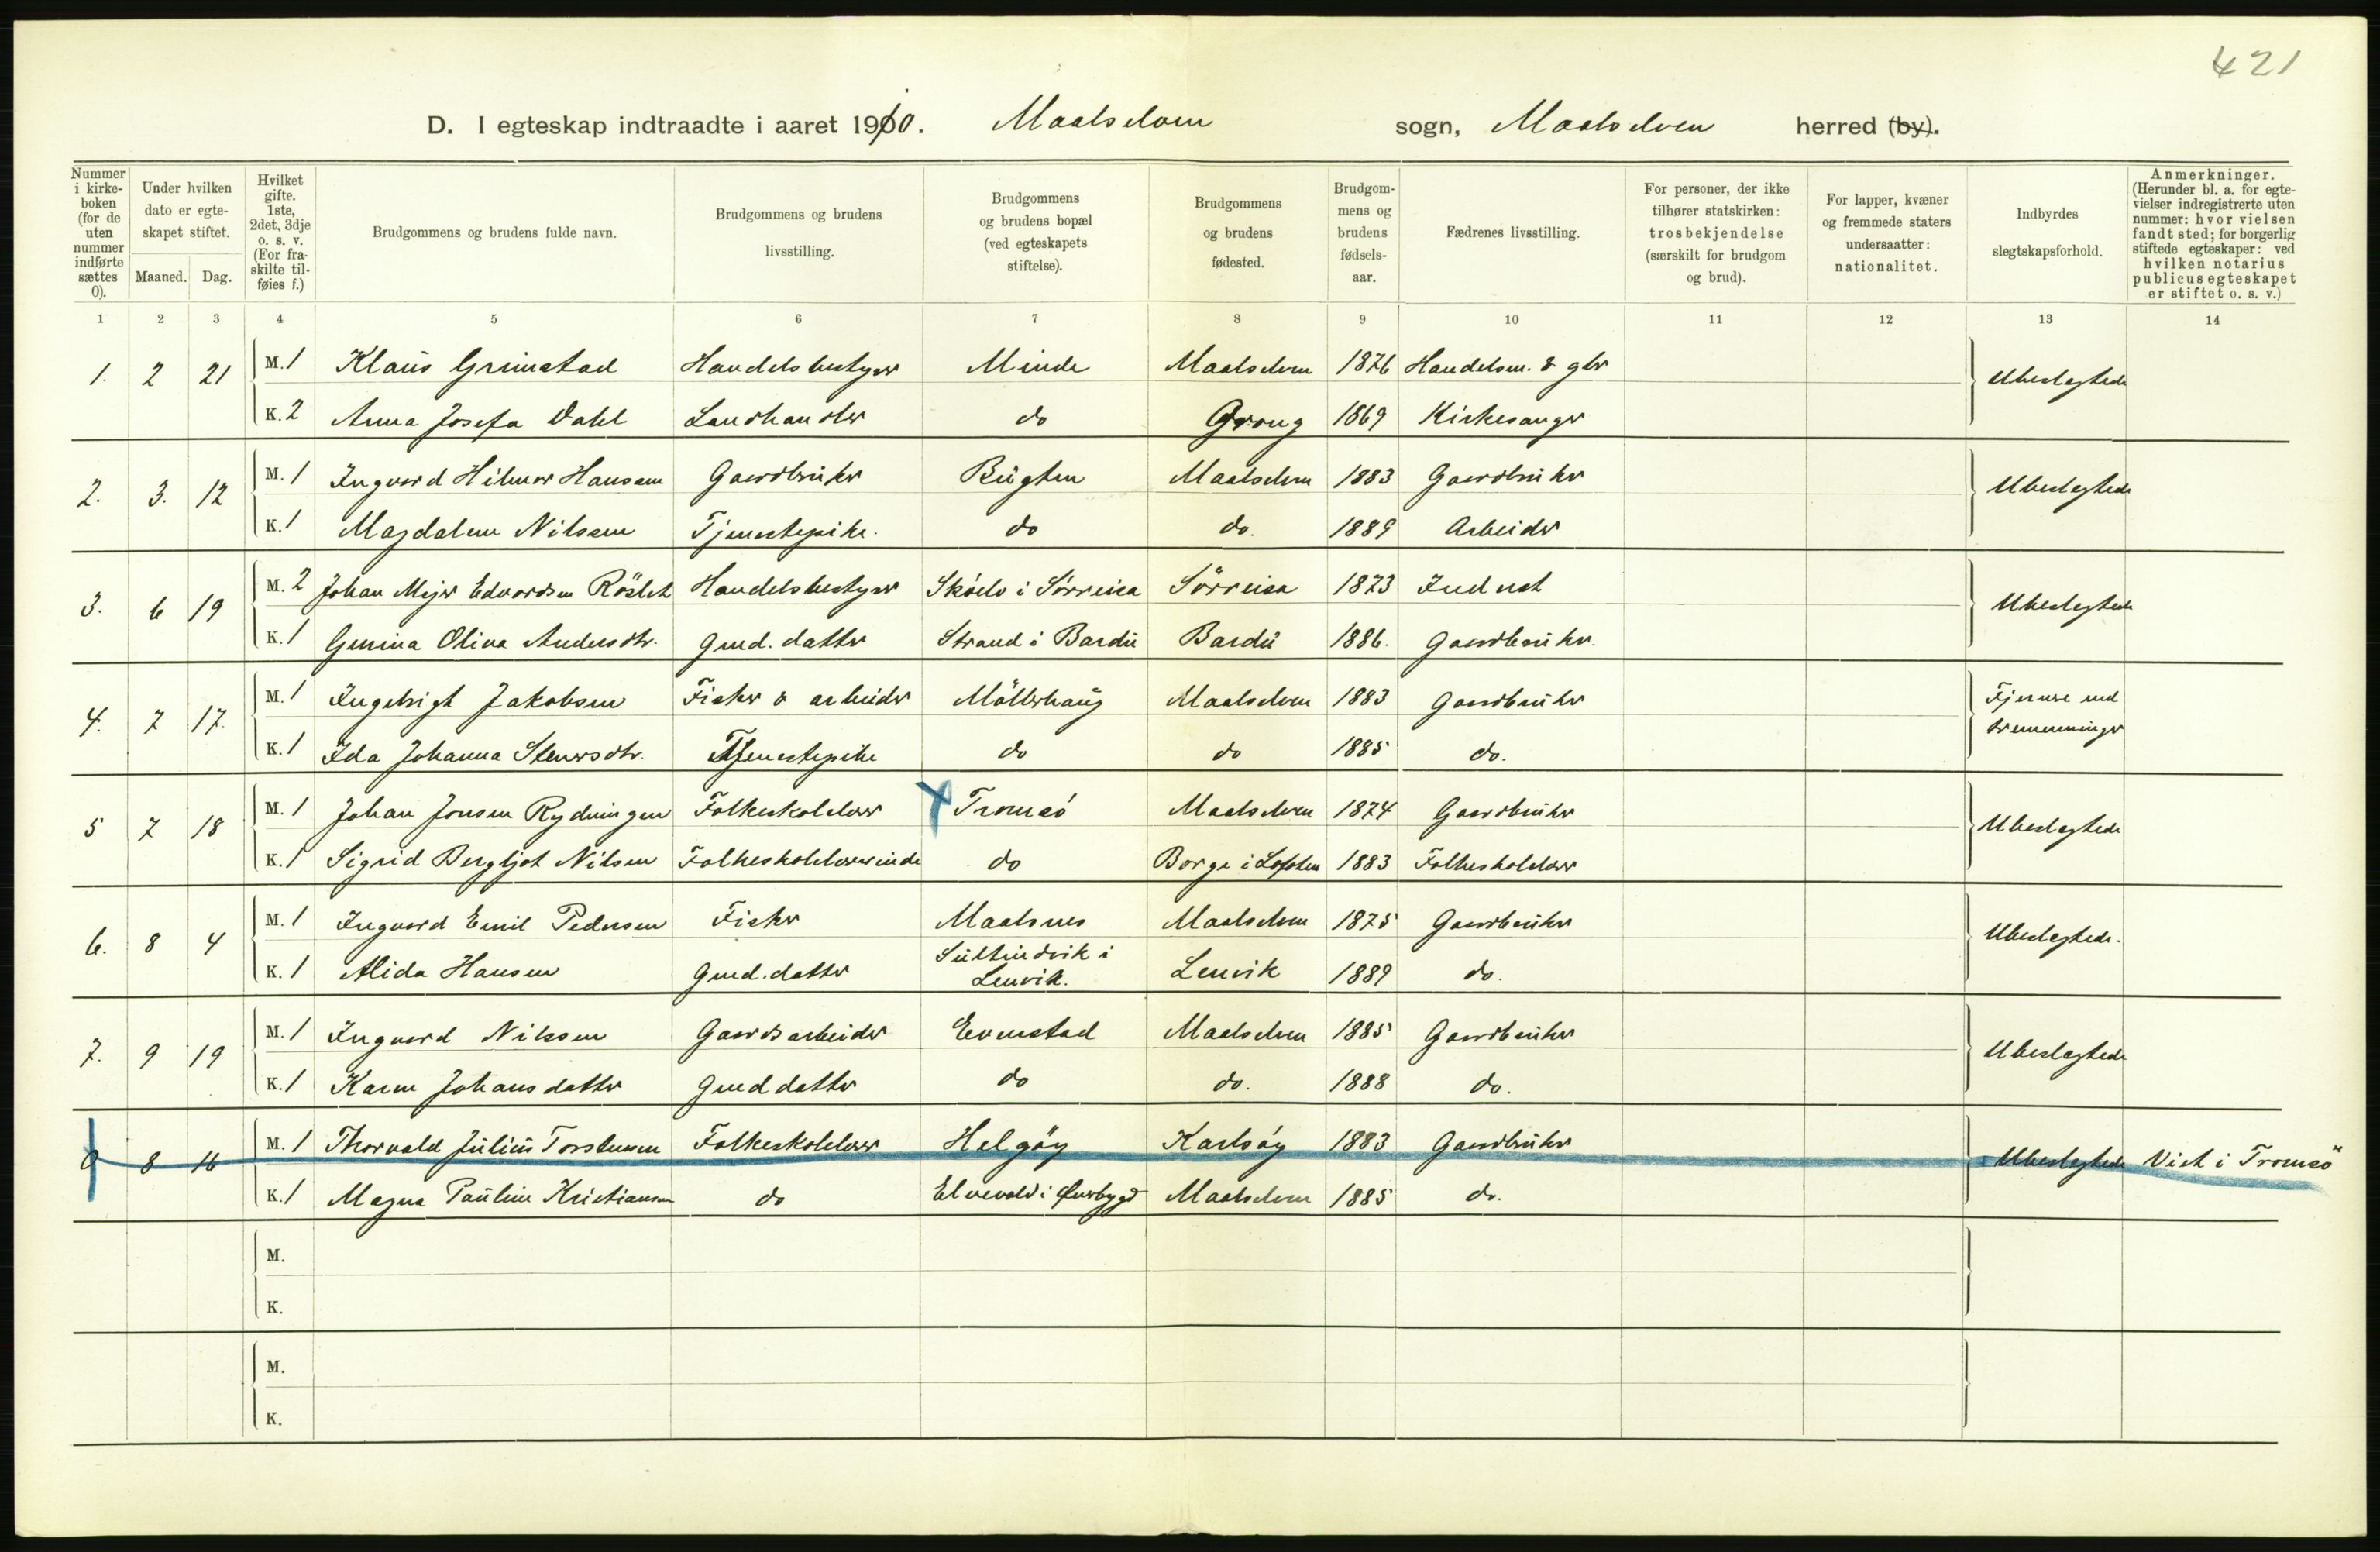 421
D. I egteskap indtraadte i aaret 1910. Maalselven sogn, Maalselven herred (by).
Nummer i kirkeboken (for de uten nummer indførte sættes 0).
Under hvilken dato er egteskapet stiftet.
Maaned. Dag.
Hvilket gifte. 1ste, 2det, 3dje o. s. v. (For fraskilte tilføies f.)
Brudgommens og brudens fulde navn.
Brudgommens og brudens livsstilling.
Brudgommens og brudens bopæl (ved egteskapets stiftelse).
Brudgommens og brudens fødested.
Brudgommens og brudens fødselsaar.
Fædrenes livsstilling.
For personer, der ikke tilhører statskirken: trosbekjendelse (særskilt for brudgom og brud).
For lapper, kvæner og fremmede staters undersaatter: nationalitet.
Indbyrdes slegtskapsforhold.
Anmerkninger. (Herunder bl. a. for egtevielser indregistrerte uten nummer: hvor vielsen fandt sted; for borgerlig stiftede egteskaper: ved hvilken notarius publicus egteskapet er stiftet o. s. v.)
1 2 3 4 5 6 7 8 9 10 11 12 13 14
1. 2 21 M. 1 Klaus Grimstad Handelsbestyrer Minde Maalselven 1876 Handelsm. & gbr Ubeslegtede
K. 2 Anna Josefa Dahl Landhandler do Grong 1869 Kirkesanger
2. 3. 12 M. 1 Ingvard Hilmar Hansen Gaardbruker Bugten Maalselven 1883 Gaardbruker Ubeslegtede
K. 1 Magdalene Nilssen Tjenestepike. do do. 1889 Arbeider
3. 6 19 M. 2 Johan Mejer Edvardsen Röslet Handelsbestyrer Sköelv i Sörreisa Sörreisa 1873 Inderst Ubeslegtede
K. 1 Gurina Oliva Andersdtr. Gmd. datter Strand i Bardu Bardu 1886. Gaardbruker.
4. 7 17. M. 1 Ingebrigt Jakobsen Fisker & arbeider Möllerhaug Maalselven 1883 Gaardbruker Fjernere end tremenninger
K. 1 Ida Johanna Steinersdtr. Tjenestepike do do 1885 do.
5 7 18 M. 1 Johan Jonsen Rydningen Folkeskolelærer Tromsö Maalselven 1874 Gaardbruker Ubeslegtede
K. 1 Sigrid Bergljot Nilsen Folkeskolelærerinde do Borge i Lofoten 1883 Folkeskolelærer
6. 8 4 M. 1 Ingvard Emil Pedersen Fisker Maalsnes Maalselven 1875 Gaardbruker Ubeslegtede.
K. 1 Alida Hansen Gmd. datter Sultindvik i Lenvik. Lenvik 1889 do.
7. 9 19 M. 1 Ingvard Nilssen Gaardsarbeider Evenstad Maalselven 1885 Gaardbruker Ubeslegtede
K. 1 Karen Johansdatter Gmd datter do do. 1888 do.
0 8 16 M. 1 Thorvald Julius Torstensen Folkeskolelærer Helgöy Karlsöy 1883 Gaardbruker Ubeslegtede Viet i Tromsö
K. 1 Magna Pauline Kristiansen do Elvevold i Øverbygd Maalselven 1885 do.
M.
K.
M.
K.